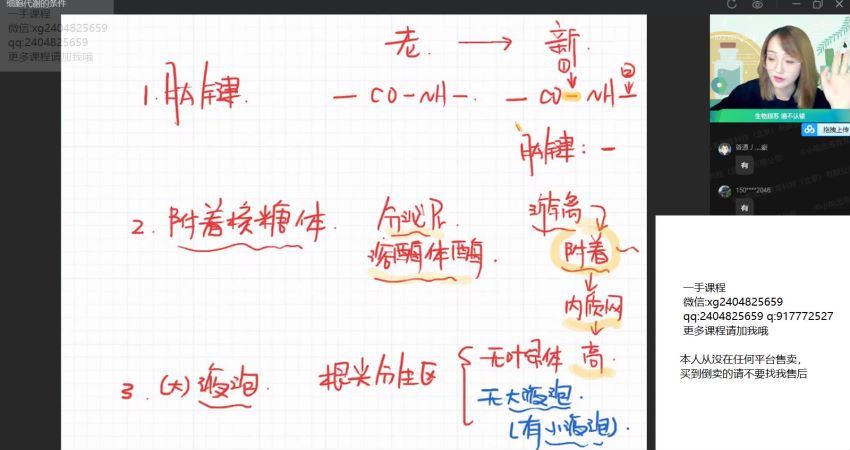 细胞代谢的条件
一手课程
微信:xg2404825659
qq:2404825659
更多课程请加我哦
老 → 新
①
②
1. 肽键 — CO-NH-. — CO-NH-
肽键: —
2. 附着核糖体 分泌 游离
溶酶体酶 附着
内质网
高
3. (大)液泡 根尖分生区 { 无叶绿体
无大液泡.
(有小液泡).
生物 绝不认输
拖拽上传
普通
有
150****2046
有
一手课程
微信:xg2404825659
qq:2404825659 q:917772527
更多课程请加我哦
本人从没在任何平台售卖，
买到倒卖的请不要找我售后